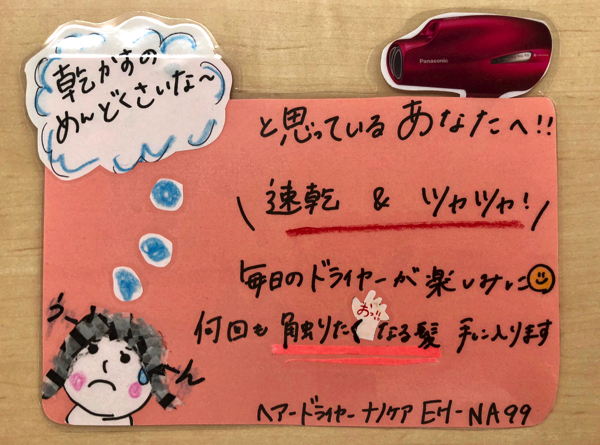 乾かすの
めんどくさいな〜
Panasonic
と思っているあなたへ!!
\ 速乾 & ツヤツヤ! /
毎日のドライヤーが楽しみに
おっ!!
何回も触りたくなる髪 手に入ります
う〜
〜ん
ヘアードライヤー ナノケア EH-NA99